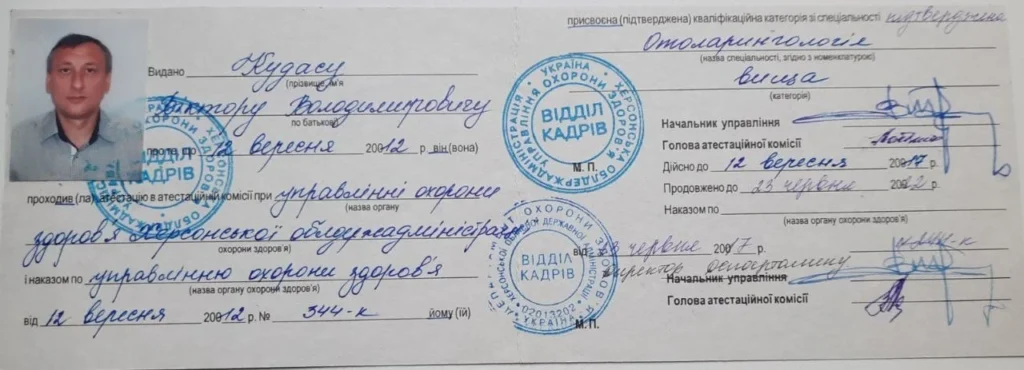 Видано Кудасу
(прізвище, ім'я
Віктору Володимировичу
по батькові)
про те, що 12 вересня 20012 р. він (вона)
проходив (ла) атестацію в атестаційній комісії при управлінні охорони
(назва органу
здоров'я Херсонської облдержадміністрації
охорони здоров'я)
і наказом по управлінню охорони здоров'я
(назва органу охорони здоров'я)
від 12 вересня 20012 р. № 344-к йому (їй)
присвоєна (підтверджена) кваліфікаційна категорія зі спеціальності підтверджена
Отоларингологія
(назва спеціальності, згідно з номенклатурою)
вища
(категорія)
Начальник управління
Голова атестаційної комісії
М. П.
Дійсно до 12 вересня 20017 р.
Продовжено до 23 червня 20022 р.
Наказом по
(назва органу охорони здоров'я)
від червня 20017 р. №
директор департаменту
Начальник управління
Голова атестаційної комісії
М. П.
УКРАЇНА
ХЕРСОНСЬКА ОБЛДЕРЖАДМІНІСТРАЦІЯ
УПРАВЛІННЯ ОХОРОНИ ЗДОРОВ'Я
ВІДДІЛ
КАДРІВ
ВІДДІЛ
КАДРІВ
02013202
УКРАЇНА
ВІДДІЛ
КАДРІВ